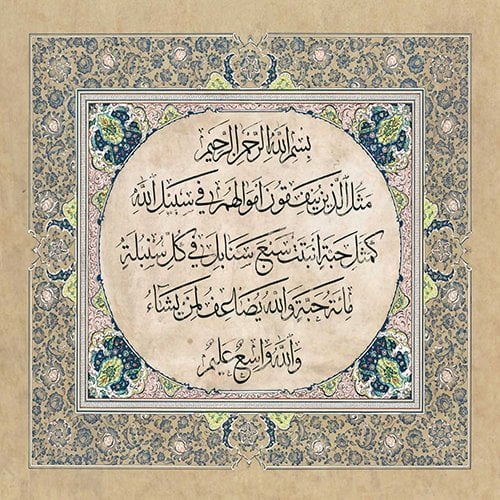 بسم الله الرحمن الرحيم
مثل الذين ينفقون اموالهم في سبيل الله
كمثل حبة انبتت سبع سنابل في كل سنبلة
مائة حبة والله يضاعف لمن يشاء
والله واسع عليم